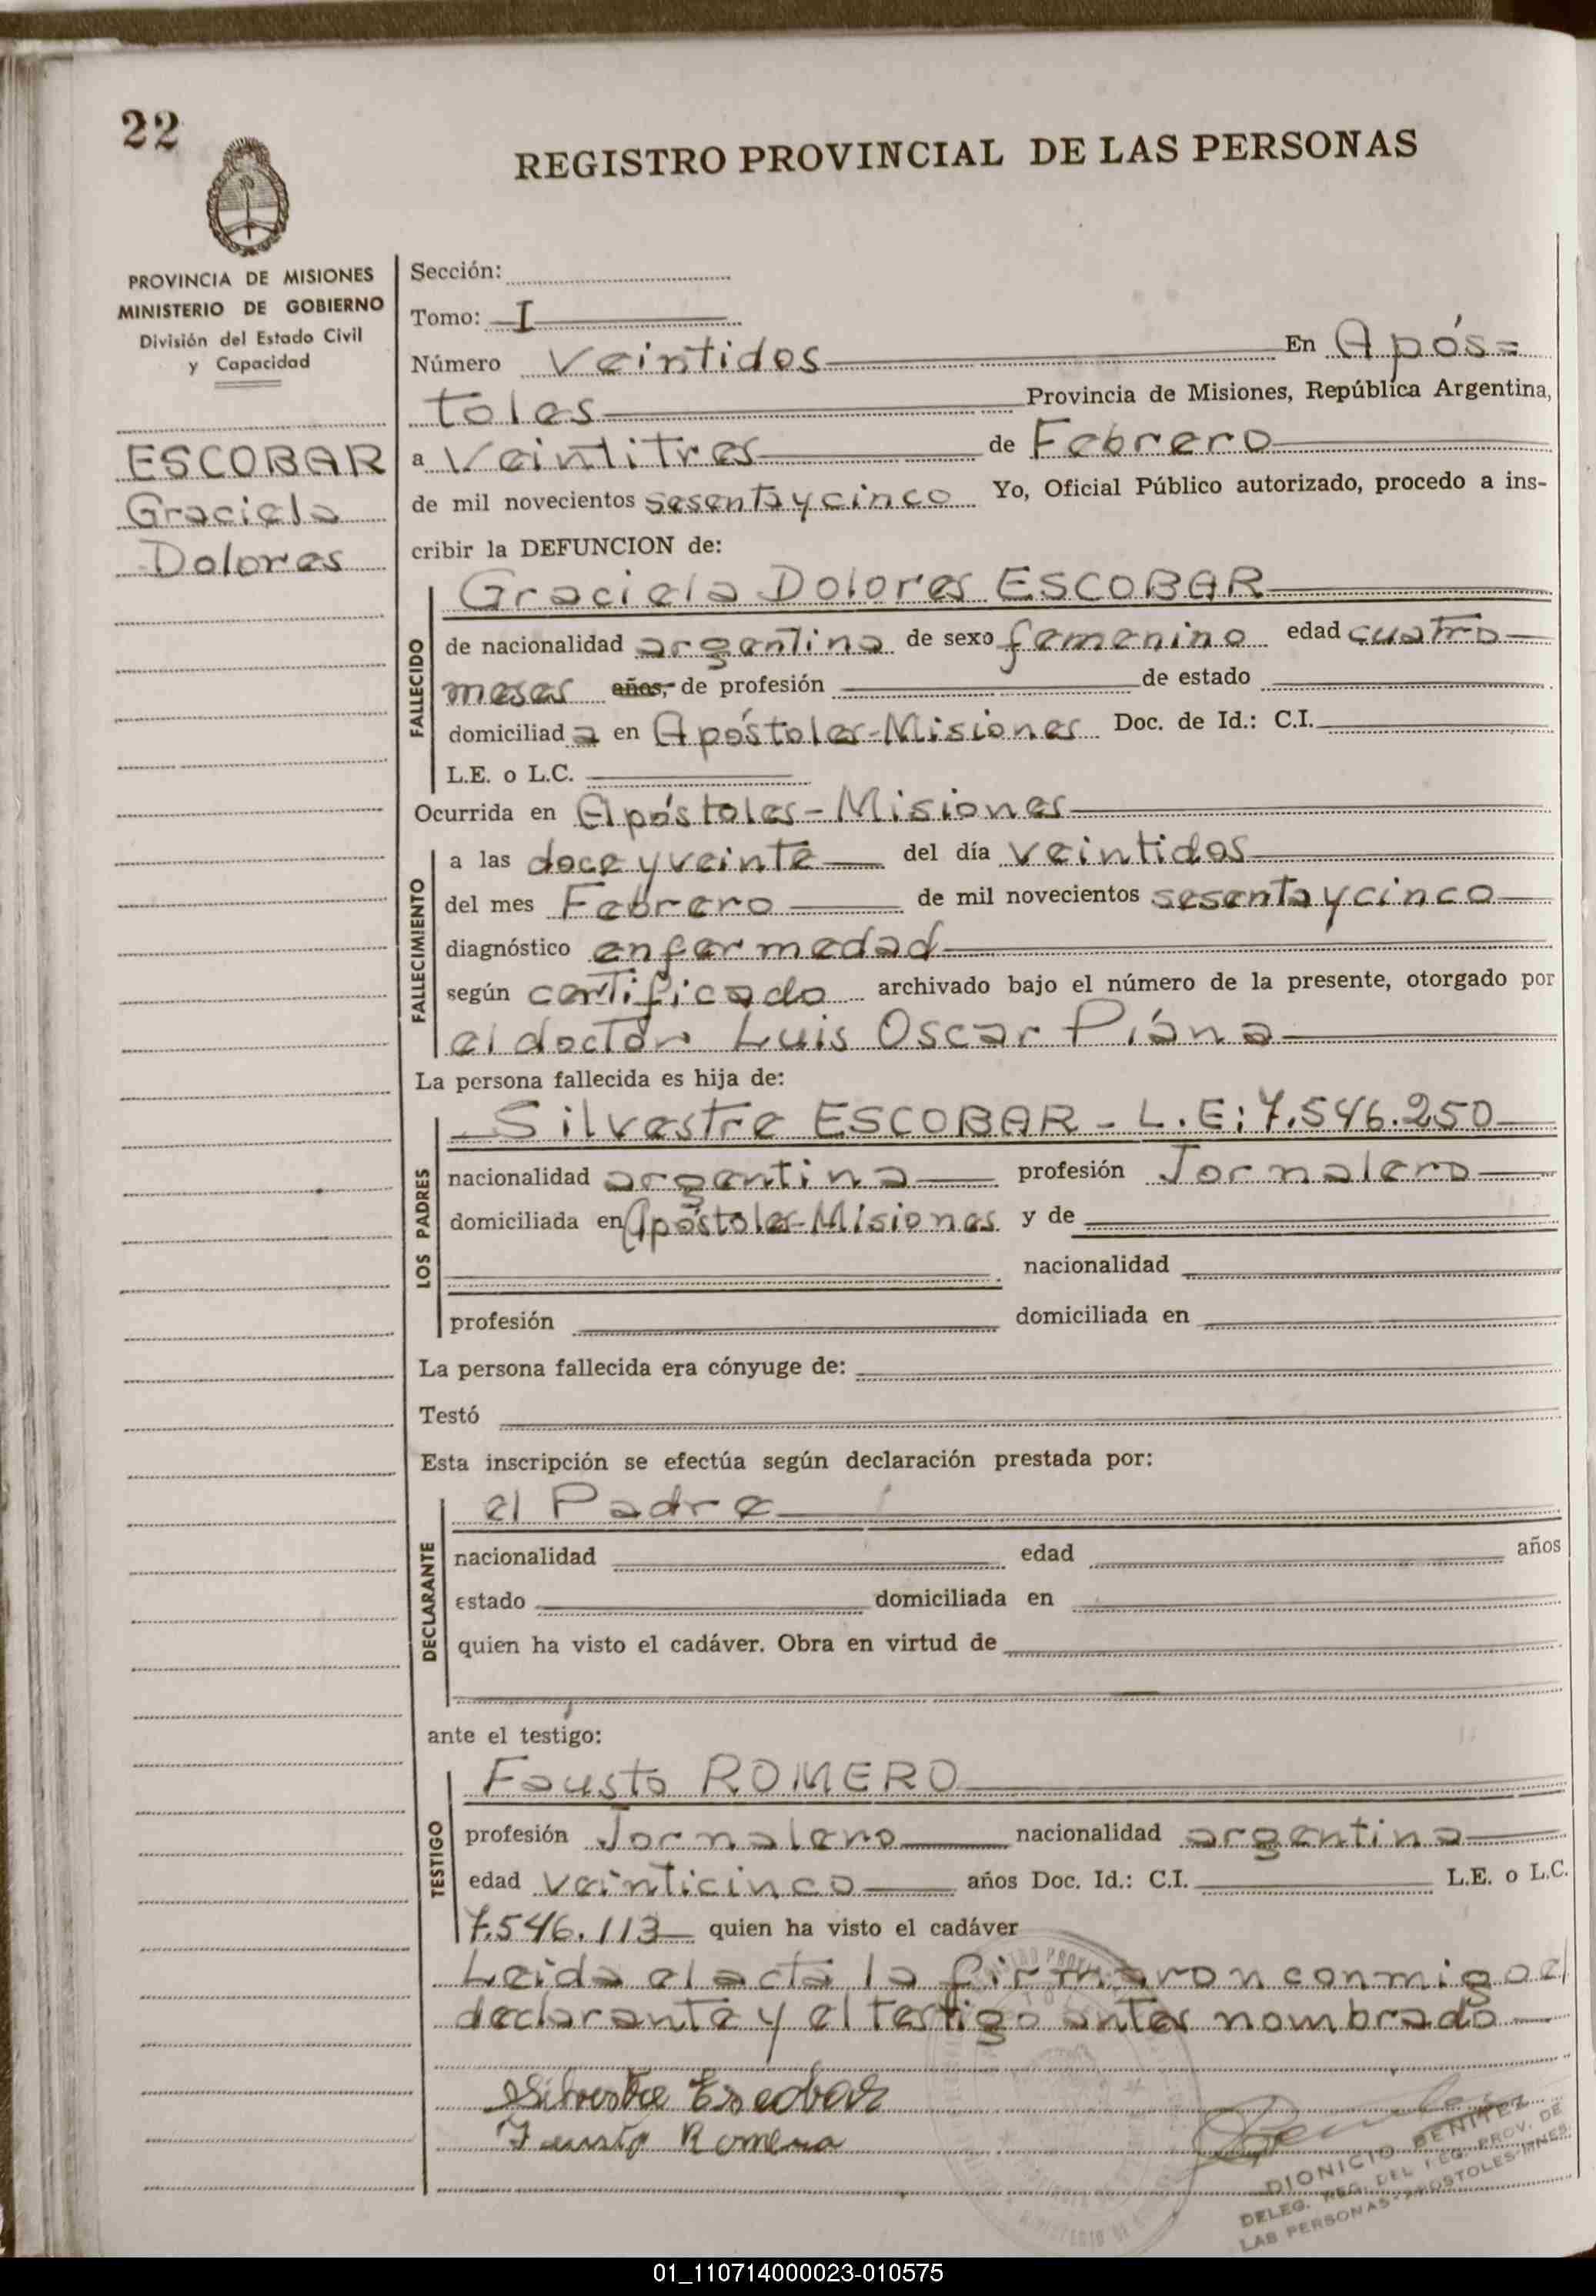 22
REGISTRO PROVINCIAL DE LAS PERSONAS
PROVINCIA DE MISIONES
MINISTERIO DE GOBIERNO
División del Estado Civil
y Capacidad
ESCOBAR
Graciela
Dolores
Sección:
Tomo: I
Número Veintidos En Após=
toles Provincia de Misiones, República Argentina,
a Veintitres de Febrero
de mil novecientos sesenta y cinco Yo, Oficial Público autorizado, procedo a ins-
cribir la DEFUNCION de:
FALLECIDO
Graciela Dolores ESCOBAR
de nacionalidad argentina de sexo femenino edad cuatro
meses años, de profesión de estado
domiciliada en Apóstoles-Misiones Doc. de Id.: C.I.
L.E. o L.C.
Ocurrida en Apóstoles-Misiones
FALLECIMIENTO
a las doce y veinte del día veintidos
del mes Febrero de mil novecientos sesenta y cinco
diagnóstico enfermedad
según certificado archivado bajo el número de la presente, otorgado por
el doctor Luis Oscar Piána
La persona fallecida es hija de:
LOS PADRES
Silvestre ESCOBAR - L.E: 7.546.250
nacionalidad argentina profesión Jornalero
domiciliada en Apóstoles-Misiones y de
nacionalidad
profesión domiciliada en
La persona fallecida era cónyuge de:
Testó
Esta inscripción se efectúa según declaración prestada por:
DECLARANTE
el Padre
nacionalidad edad años
estado domiciliada en
quien ha visto el cadáver. Obra en virtud de
ante el testigo:
TESTIGO
Fausto ROMERO
profesión Jornalero nacionalidad argentina
edad veinticinco años Doc. Id.: C.I. L.E. o L.C.
7.546.113 quien ha visto el cadáver
Leida el acta la firmaron conmigo el
declarante y el testigo antes nombrado
Silvestre Escobar
Fausto Romero
DIONICIO BENITEZ
DELEG. REG. DEL REG. PROV. DE
LAS PERSONAS-APOSTOLES-MNES.
01_110714000023-010575